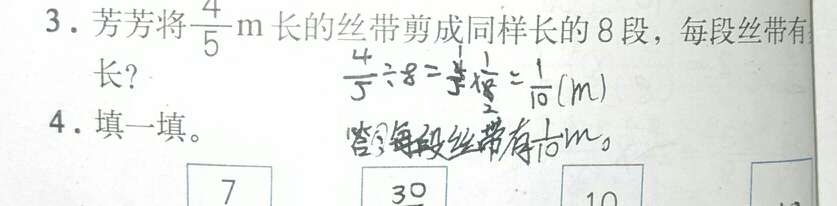 3. 芳芳将4/5 m 长的丝带剪成同样长的 8 段，每段丝带有
长?
4/5÷8=4/5×1/8=1/10(m)
4. 填一填。
答:每段丝带有1/10m。
7 30 10